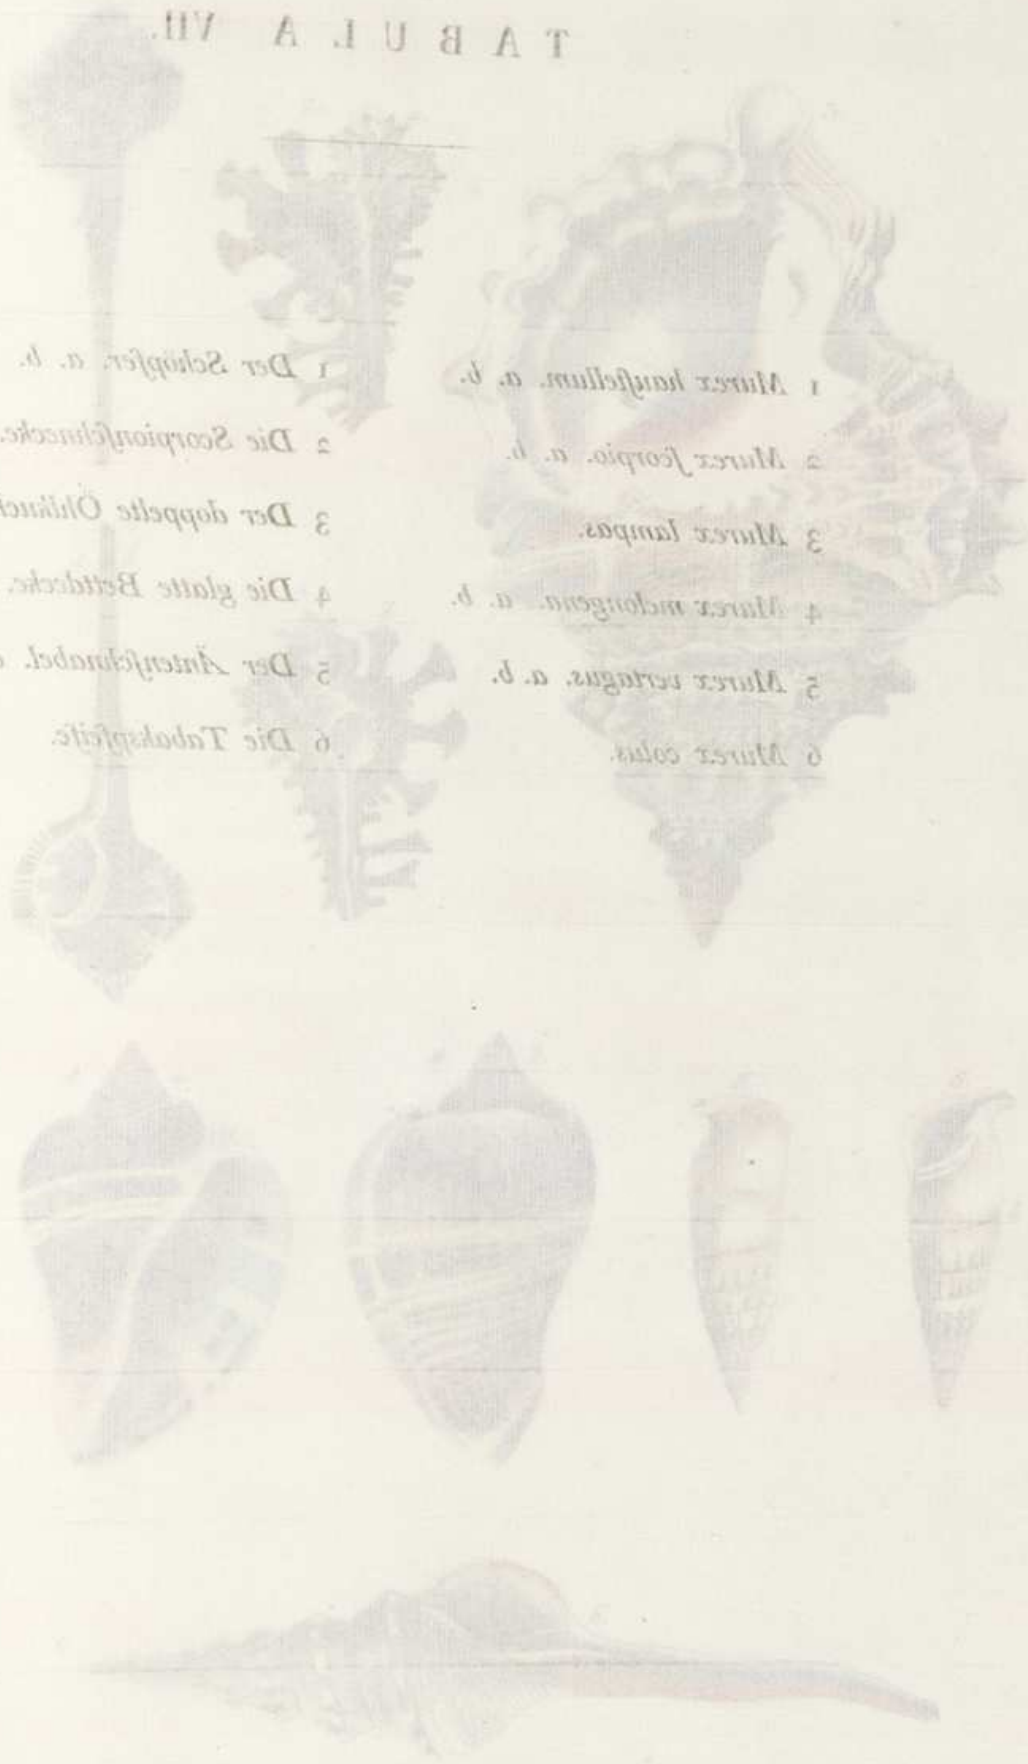 TABULA VII.
1 Murex hauſtellum. a. b.
2 Murex ſcorpio. a. b.
3 Murex lampas.
4 Murex melongena. a. b.
5 Murex vertagus. a. b.
6 Murex colus.
1 Der Schöpfer. a. b.
2 Die Scorpionſchnecke.
3 Der doppelte
4 Die glatte Bettdecke.
5 Der Äntenſchnabel.
6 Die Tabakspfeife.